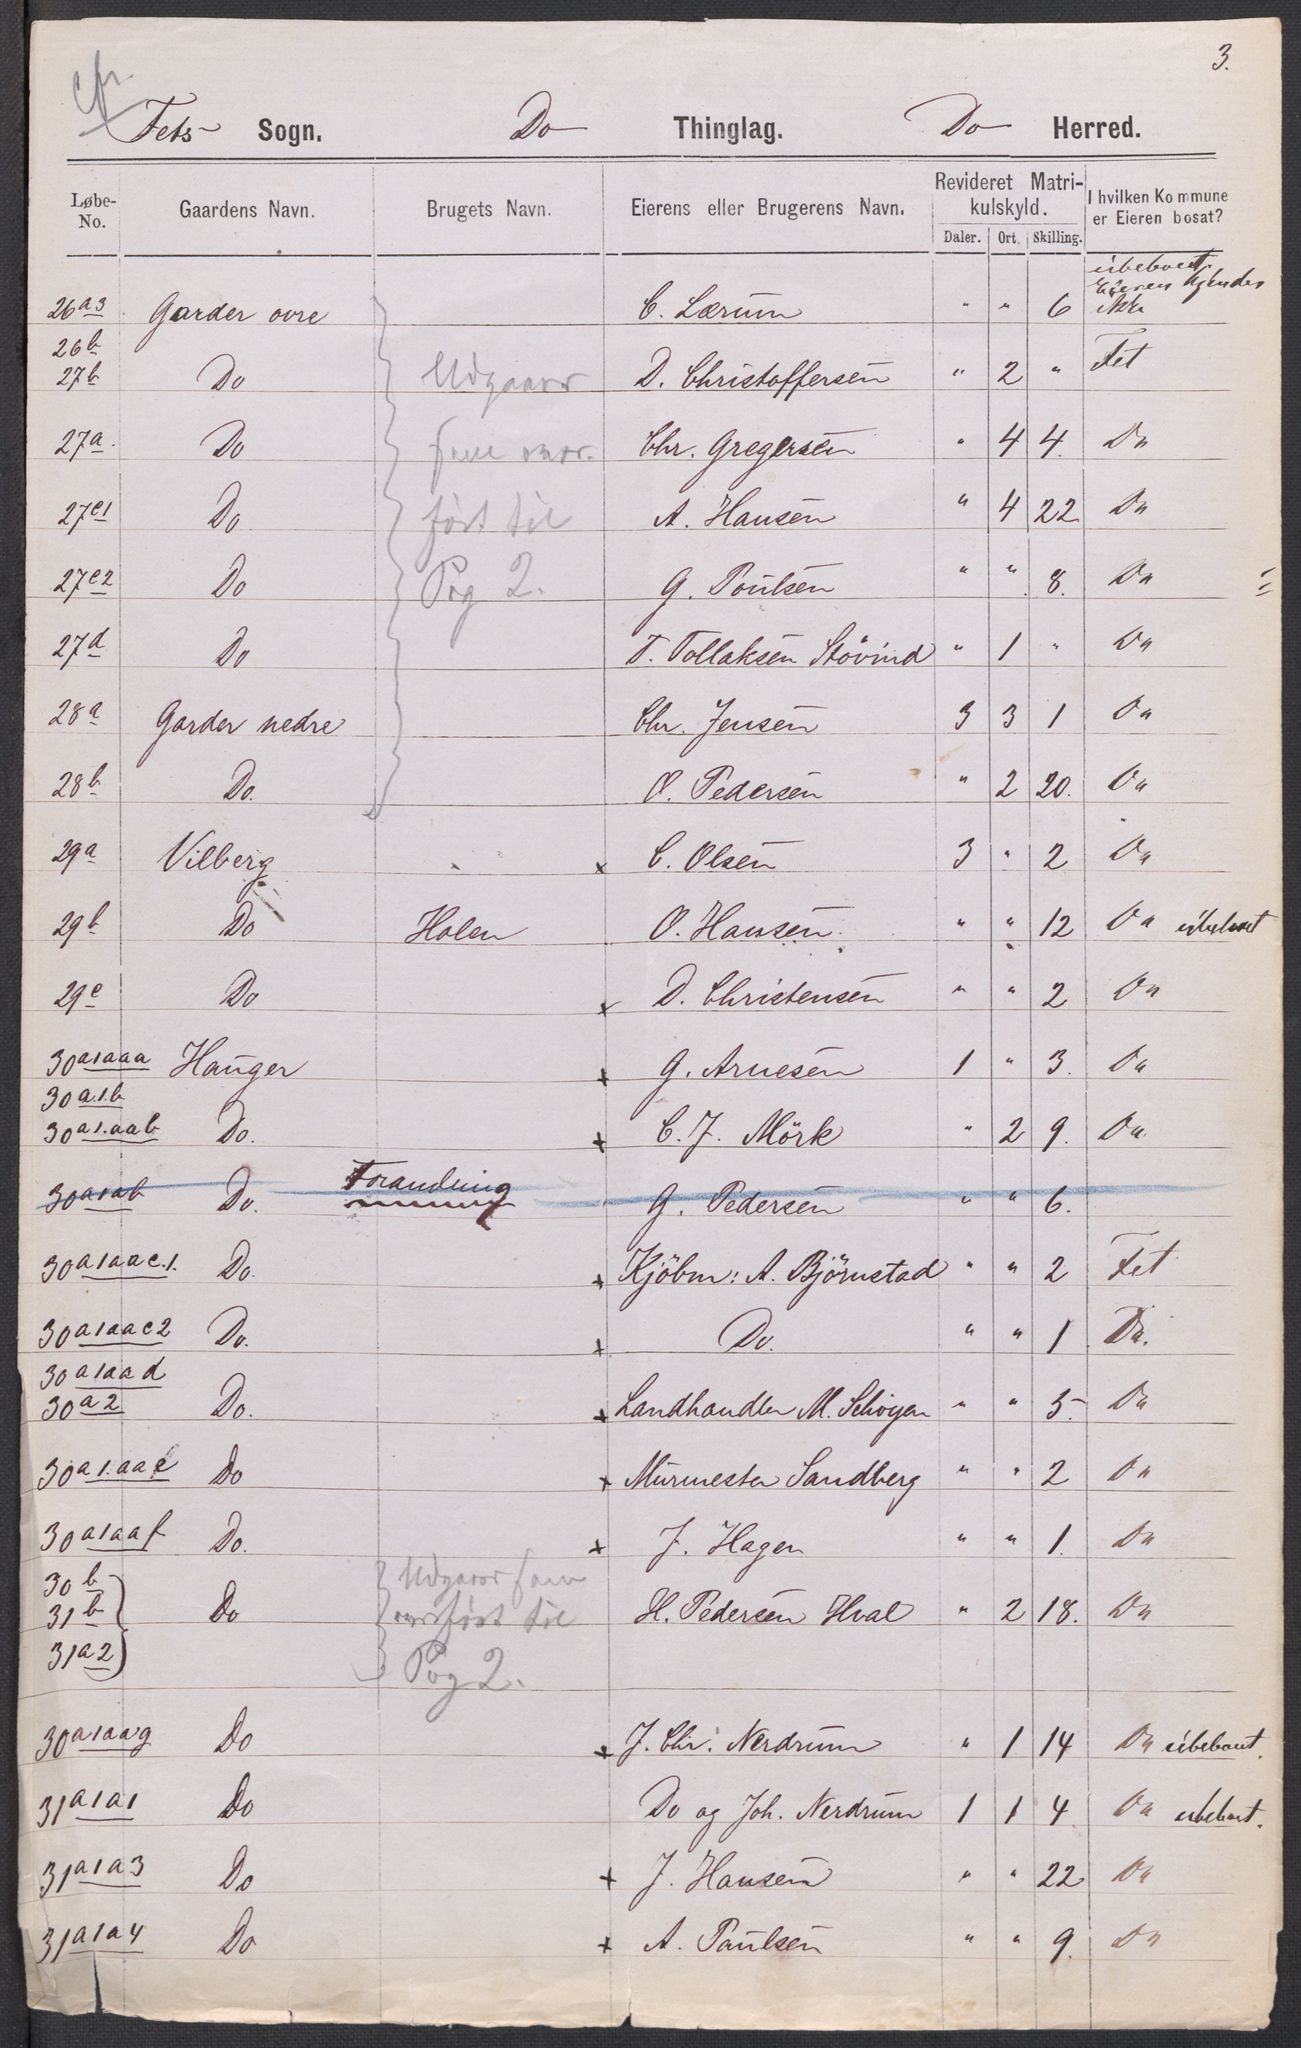 3.
cfr.
Fets Sogn. Do Thinglag. Do Herred.
Løbe-No. Gaardens Navn. Brugets Navn. Eierens eller Brugerens Navn. Revideret Matrikulskyld. Daler. Ort. Skilling. I hvilken Kommune er Eieren bosat?
26a3 Garder ovre C. Lærum " " 6 ubeboet. Eieren kjendes ikke
26b
27b Do D. Christoffersen " 2 " Fet
27a. Do Chr. Gregersen " 4 4. Do
27c1 Do A. Hansen " 4 22 Do
27c2 Do G. Poulsen " " 8. Do
27d Do T. Tollaksen Stövind " 1 " Do
28a Garder nedre Chr. Jensen 3 3 1 Do
28b Do. O. Pedersen " 2 20. Do
Udgaar
som over-
ført til
Pag 2.
29a Vilberg x C. Olsen 3 " 2 Do
29b Do Holen O. Hansen " " 12 Do ubeboet
29c Do x D. Christensen " " 2 Do
30a1aaa Hauger x G. Arnesen 1 " 3. Do
30a.1.b
30a1.aab Do. x C. J. Mörk " 2 9. Do.
30a1ab Do. Forandring G. Pedersen " " 6.
30a1aac.1. Do. x Kjöbm: A. Björnstad " " 2 Fet
30a1aac2 Do. x Do. " " 1 Do.
30a1aad
30a2 Do. x Landhandler M. Schøyen " " 5. Do
30a1.aae Do x Murmester Sandberg " " 2 Do
30a1aaf Do. x J. Hagen " " 1. Do
30b
31b Do Udgaar som overført til Pag 2. H. Pedersen Hval " 2 18. Do
31a2
30a1aag Do x J. Chr. Nerdrum " 1 14 Do ubeboet.
31a1a1 Do Do og Joh. Nerdrum 1 1 4 Do ubeboet.
31a1a3 Do x J. Hansen " " 22 Do
31a1a4 Do x A. Paulsen " " 9. Do